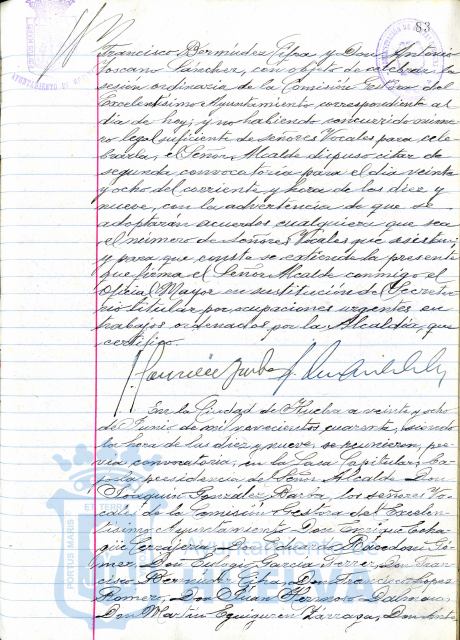 83
Francisco Bermúdez y Don Antonio
Toscano Sánchez, con objeto de celebrar la
sesión ordinaria de la Comisión Gestora del
Excelentísimo Ayuntamiento correspondiente al
día de hoy; y no habiendo concurrido núme-
ro legal suficiente de señores Vocales para cele-
brarla, el Señor Alcalde dispuso citar de
segunda convocatoria para el día veinte
y ocho del corriente y hora de las diez y
nueve, con la advertencia de que se
adoptarán acuerdos cualquiera que sea
el número de Señores Vocales que asistan;
y para que conste se extiende la presente
que firma el Señor Alcalde conmigo el
Oficial Mayor en sustitución del Secreta-
rio titular por ocupaciones urgentes en
trabajos ordenados por la Alcaldía, que
certifico.
En la Ciudad de Huelva a veinte y ocho
de Junio de mil novecientos cuarenta, siendo
la hora de las diez y nueve, se reunieron, pre-
via convocatoria, en la Casa Capitular, ba-
jo la presidencia del Señor Alcalde Don
Joaquín González Barba, los señores Vo-
cales de la Comisión Gestora del Excelen-
tísimo Ayuntamiento Don Enrique
Don
Don Eulogio García Don Fran-
cisco Bermúdez Don Francisco López
Romero, Don Juan
Don Martín Eguiguren Don Anto-
PORTUS MARIS
ET TERRAE
Ayuntamiento de